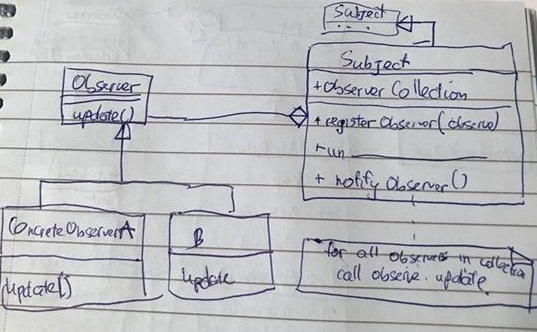 Subject
...
Subject
+Observer Collection
+registerObserver(observe)
+un
+ notify Observer()
Observer
update()
ConcreteObserverA
update()
B
update
for all observers in collection
call observe.update